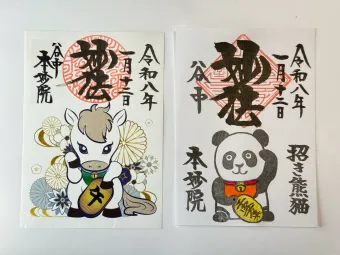 令和八年
一月十二日
妙法
谷中
本妙院
令和八年
一月十二日
妙法
谷中
招き熊猫
本妙院